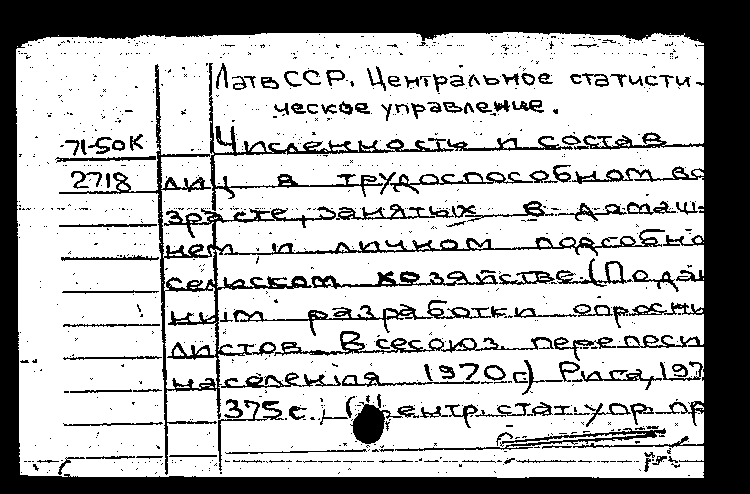 ЛатвССР. Центральное статисти-
ческое управление.
71-50К Численность и состав
2718 лиц в трудоспособном во
зрасте, занятых в домаш-
нем и личном подсобно
сельском хозяйстве. (По дан
ным разработки опросны
листов Всесоюз. переписи
населения 1970г.) Рига, 197
375с. (Центр. стат. упр. пр